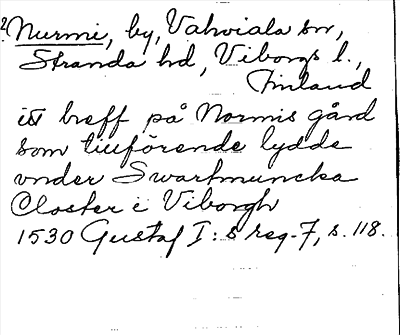 2 Nurmi, by, Vahviala sn,
Stranda hd, Viborgs l.,
Finland
itt breff på Normis gård
som tiuförende lydde
vnder Swartmuncka
Closter i Viborgh
1530 Gustaf I:s reg. 7, s. 118.